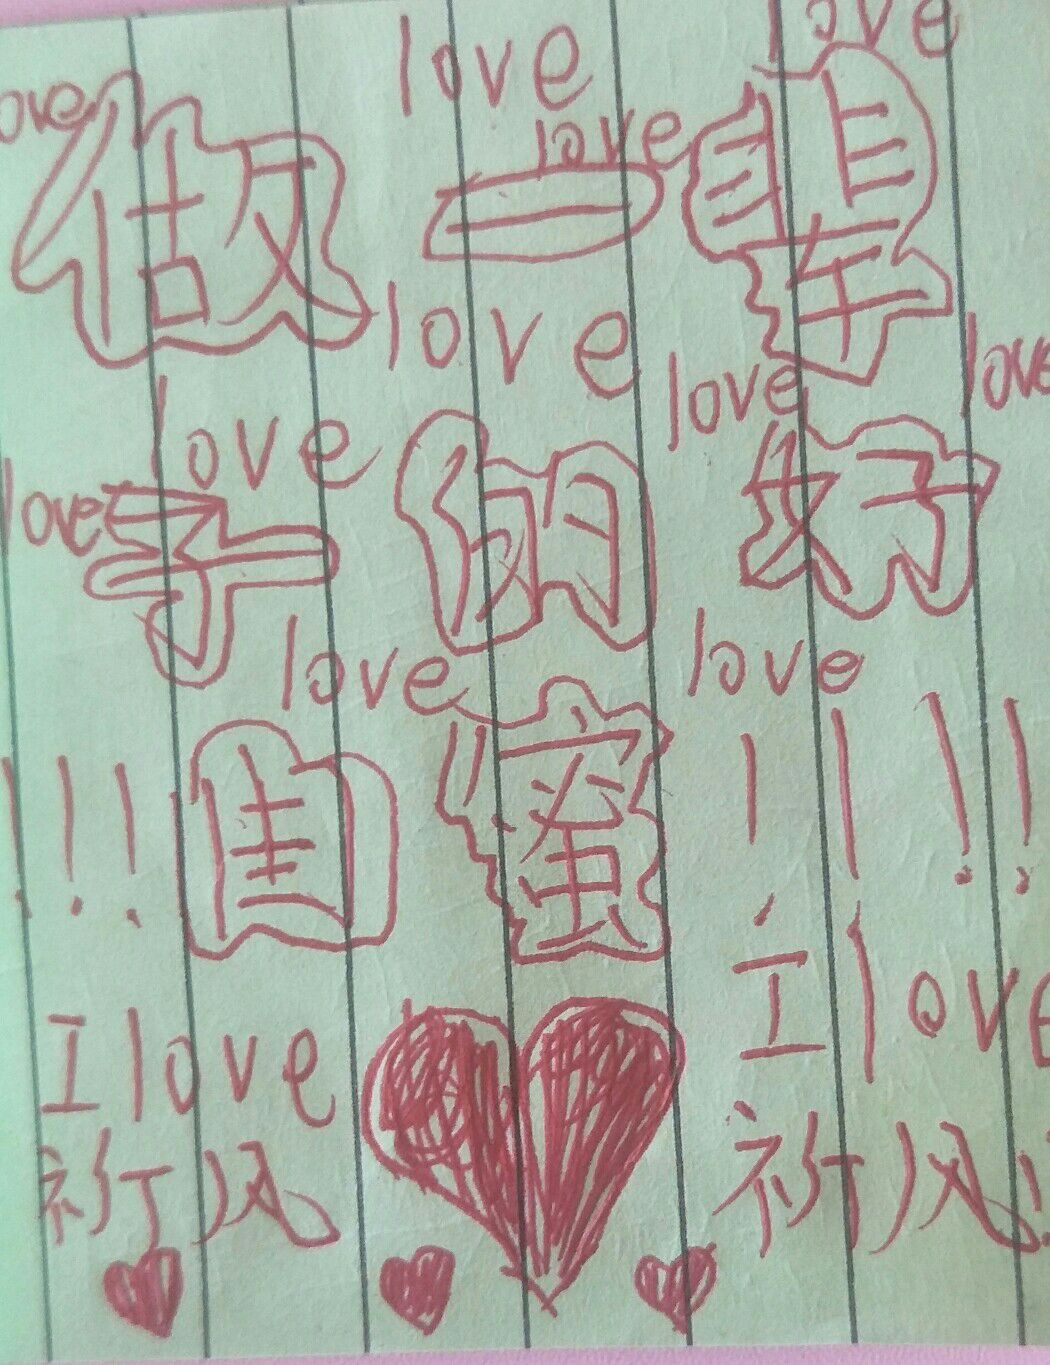 love love
ove love
做一辈
love love love
love love
子的好
love love
!!!闺蜜!!!!
I love I love
祈风 祈风!